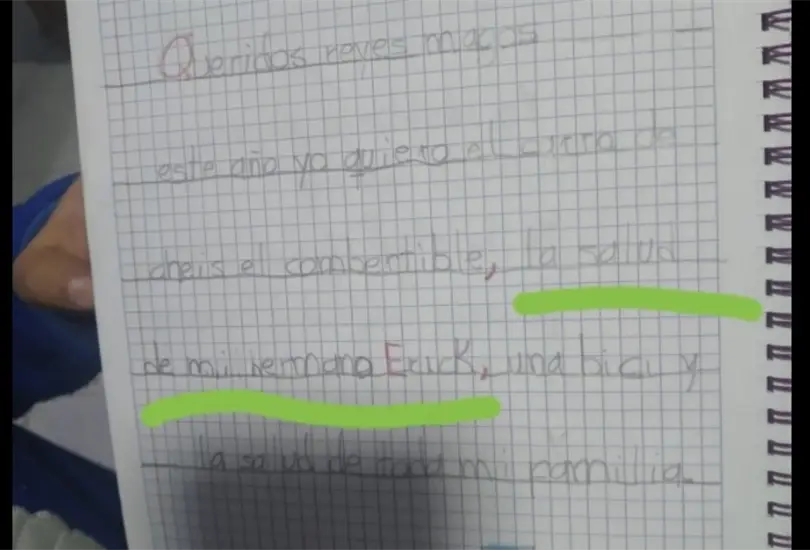 Queridos reyes magos
este año yo quiero el carro de
cheis el combertible, la salud
de mi hermano Erick, una bici y
la salud de toda mi familia.